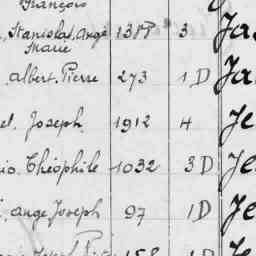 François
Stanislas, Ange 1388 3 Ja
Marie
Albert, Pierre 273 1 D Ja
el, Joseph 1912 4 Je
io, Théophile 1032 3 D Je
, Ange Joseph 97 1 D Je
158 1 D Je